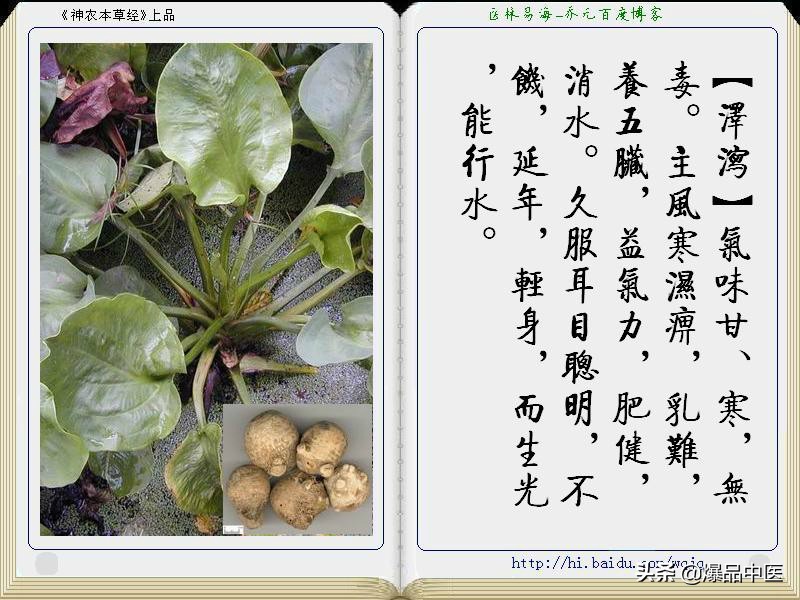 《神农本草经》上品
医林易海_乔元百度博客
【澤瀉】氣味甘、寒，無
毒。主風寒濕痹，乳難，
養五臟，益氣力，肥健，
消水。久服耳目聰明，不
饑，延年，輕身，而生光
，能行水。
http://hi.baidu.com/
头条 @爆品中医